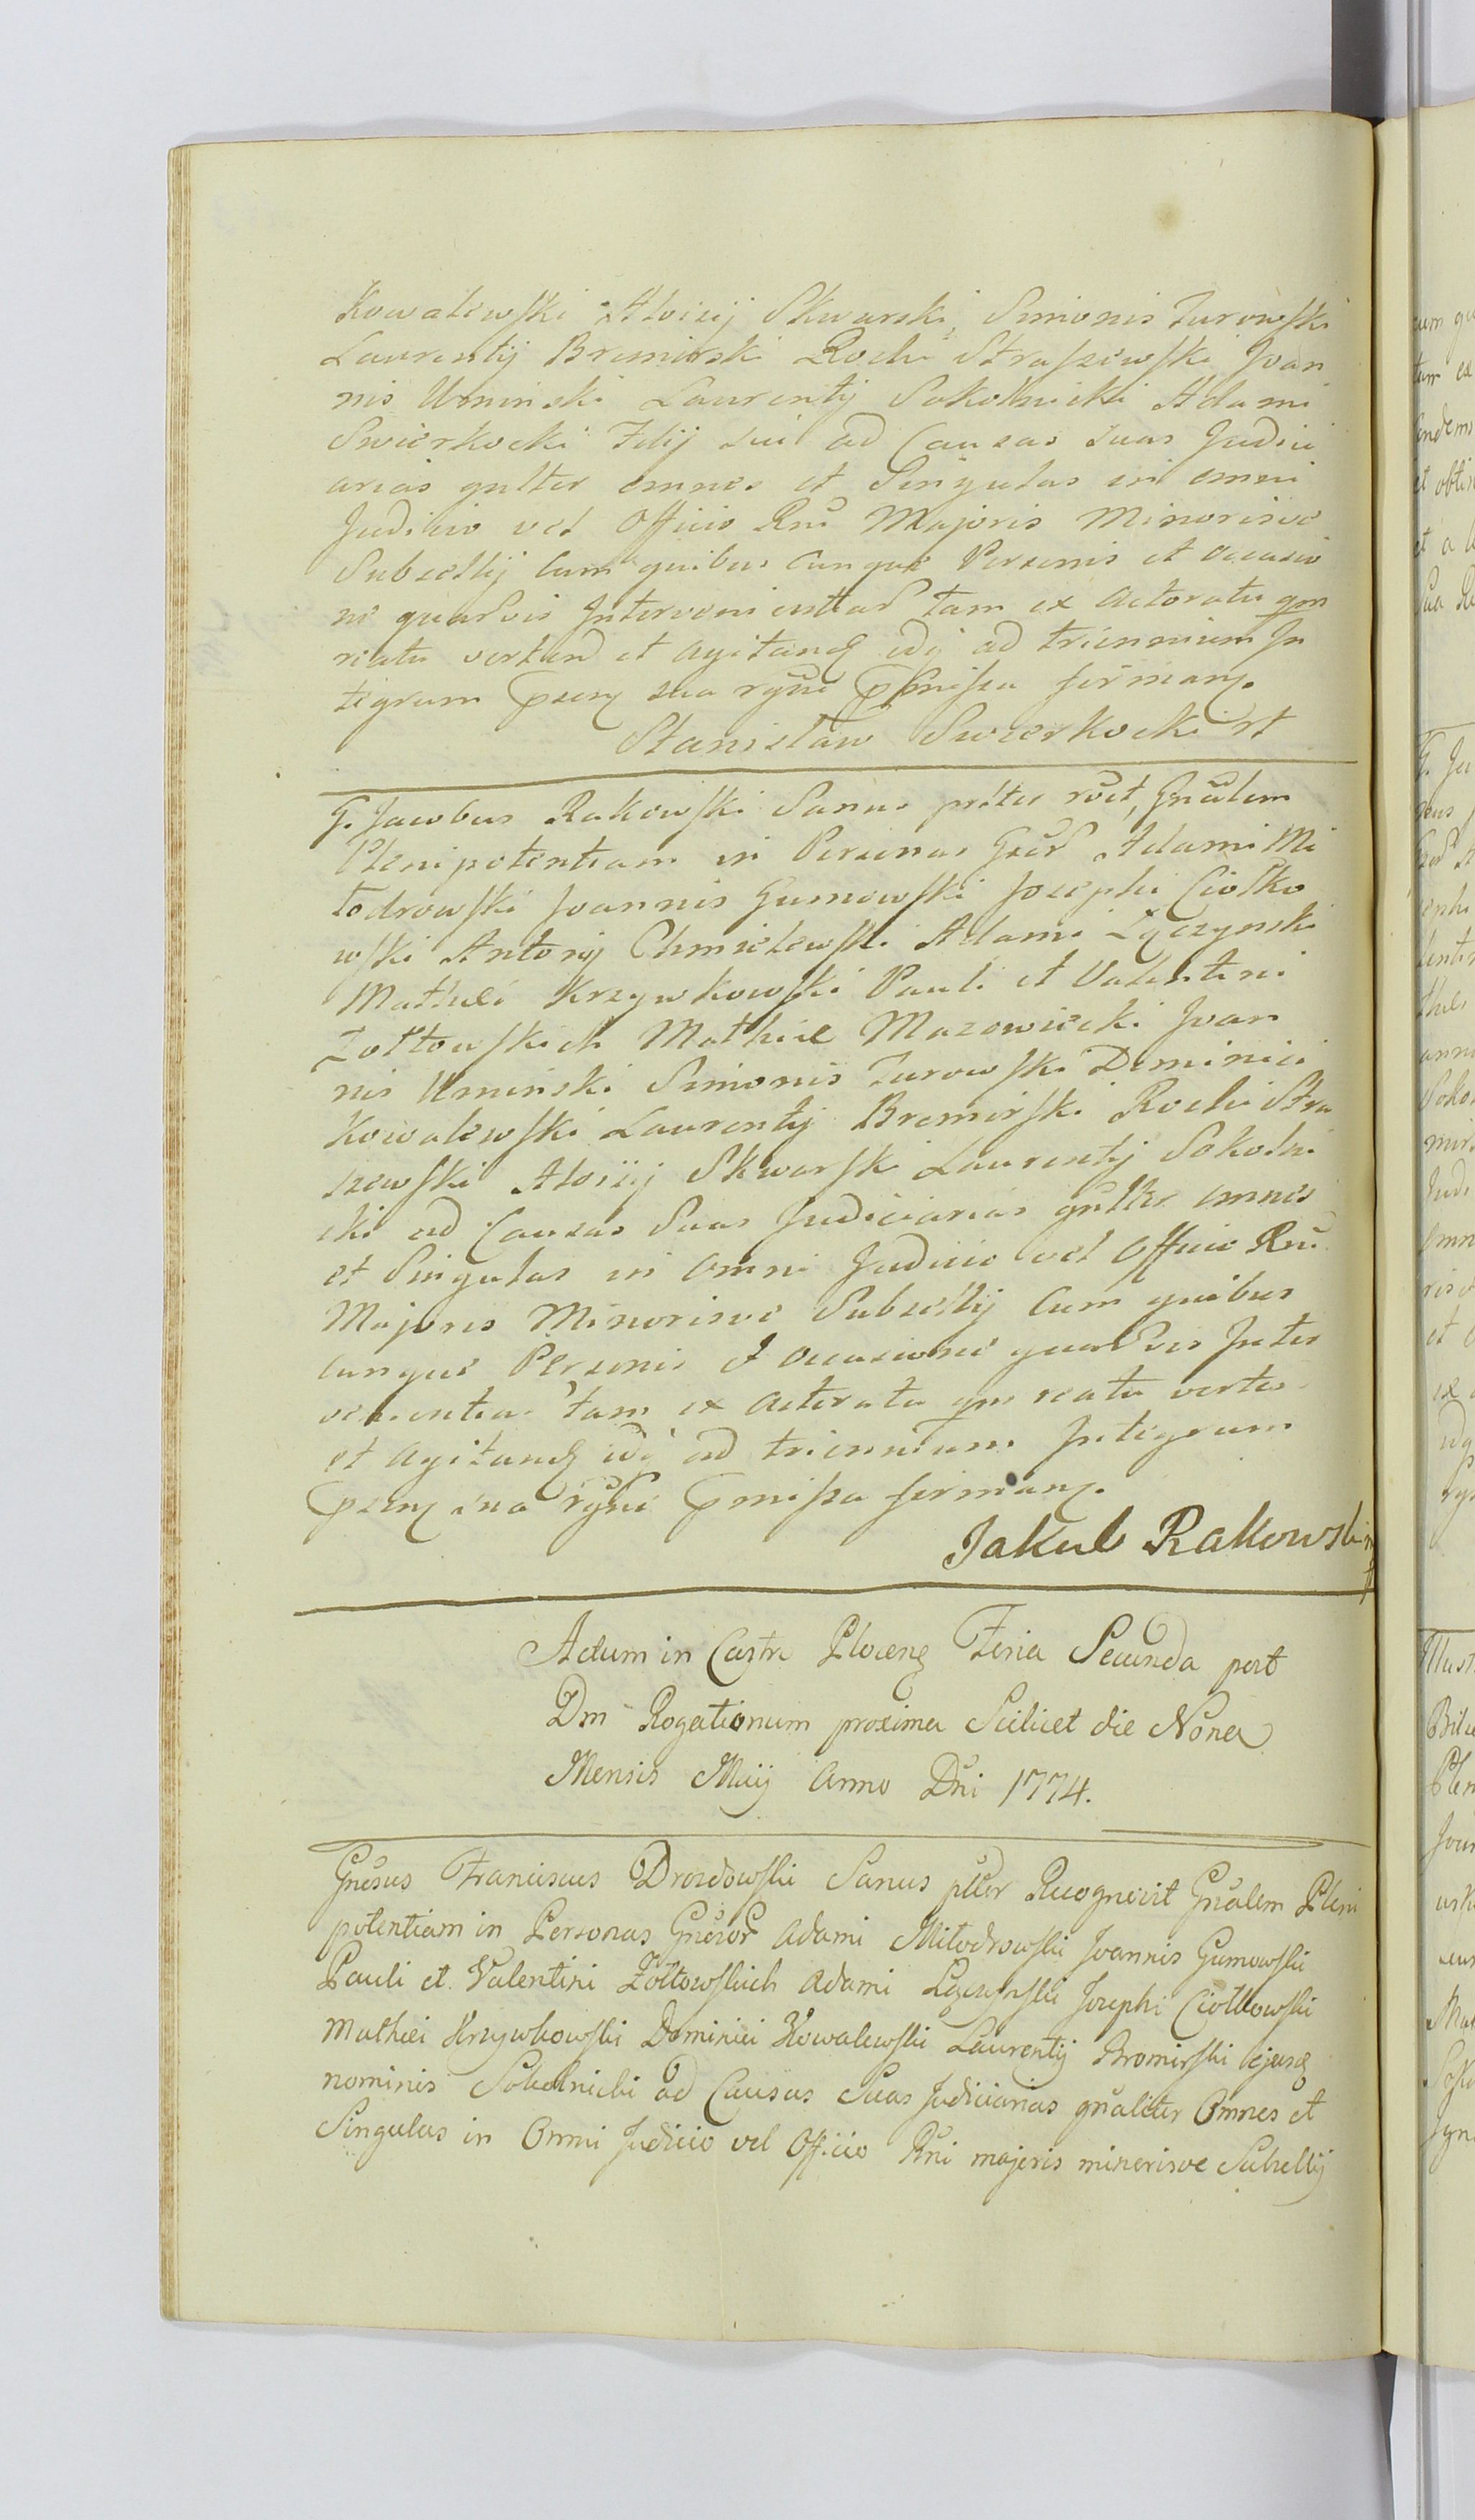 Kowalewski Aloizij Skwarski, Simonis Zurowski
Laurentij Bromirski Rochi Straszewski Joan
nis Uminski Laurentij Sokolnicki Adami
Swierkocki Filij sui ad Causas suas Judici
arias gnlter omnes et Singulas in omni
Judicio vel Officio Rni Majoris Minorisve
Subsellij Cum quibus Cunque Personis et occasio
ne quarvis Intervenientiar tam ex Actoratu qm
reatu verten et agitand idq ad triennium In
tegrum sua firmans.
Stanislaw Swierkocki
G. Jacobus Rakowski Sanus prlter rcvt, Gnalem
Plenipotentiam in Personas Gser Adami Mi
łodrowski Joannis Gumowski Josephi Ciołko
wski Antonij Chmielewski Adami Łączynski
Mathei Krzywkowski Pauli et Valentini
Zołtowskich Mathiæ Mazowiecki Joan
nis Uminski Simonis Zurowski Dominici
Kowalewski Laurentij Bromirski Rochi Stra
szewski Aloizij Skwarski Laurentij Sokolni
cki ad Causas Suas Judiciarias gnlter omnes
et Singulas in omni Judicio vel Officio Rni
Majoris Minorisve Subsellij Cum quibus
cunque Personis et occasione quarvis Inter
venientiar tam ex Actoratu qm reatu verten
et agitand idq ad triennium Integrum
sua firmans.
Jakub Rakowski
Actum in Castro Plocens Feria Secunda post
Dm Rogationum proxima Scilicet die Nona
Mensis Maij Anno Dni 1774.
Gnesus Franciscus Drozdowski Sanus pller Recognovit Gnalem Pleni
potentiam in Personas Gnesor Adami Miłodrowski Joannis Gumowski
Pauli et Valentini Zołtowskich Adami Łączynski Josephi Ciołkowski
Mathei Krzywkowski Dominici Kowalewski Laurentij Bromirski ejusq
nominis Sokolnicki ad Causas Suas Judiciarias gnaliter Omnes et
Singulas in Omni Judicio vel Officio Rni majoris minorisve Subsellij